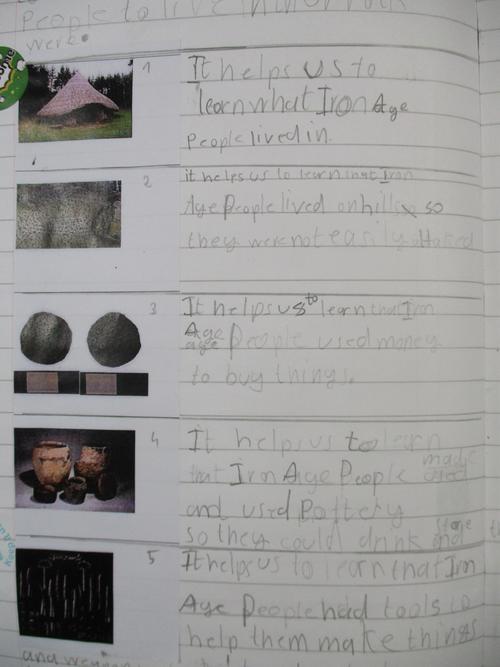 People to live in
were.
1
It helps us to
learn what Iron Age
people lived in.
2
it helps us to learn that Iron
Age People lived on hills so
they were not easily attacked
3
It helps us to learn that Iron
Age
age People used money
to buy things.
4
It helps us to learn
that Iron Age People made
and used Pottery
so they could drink and store
5
It helps us to learn that Iron
Age People had tools to
help them make things
and